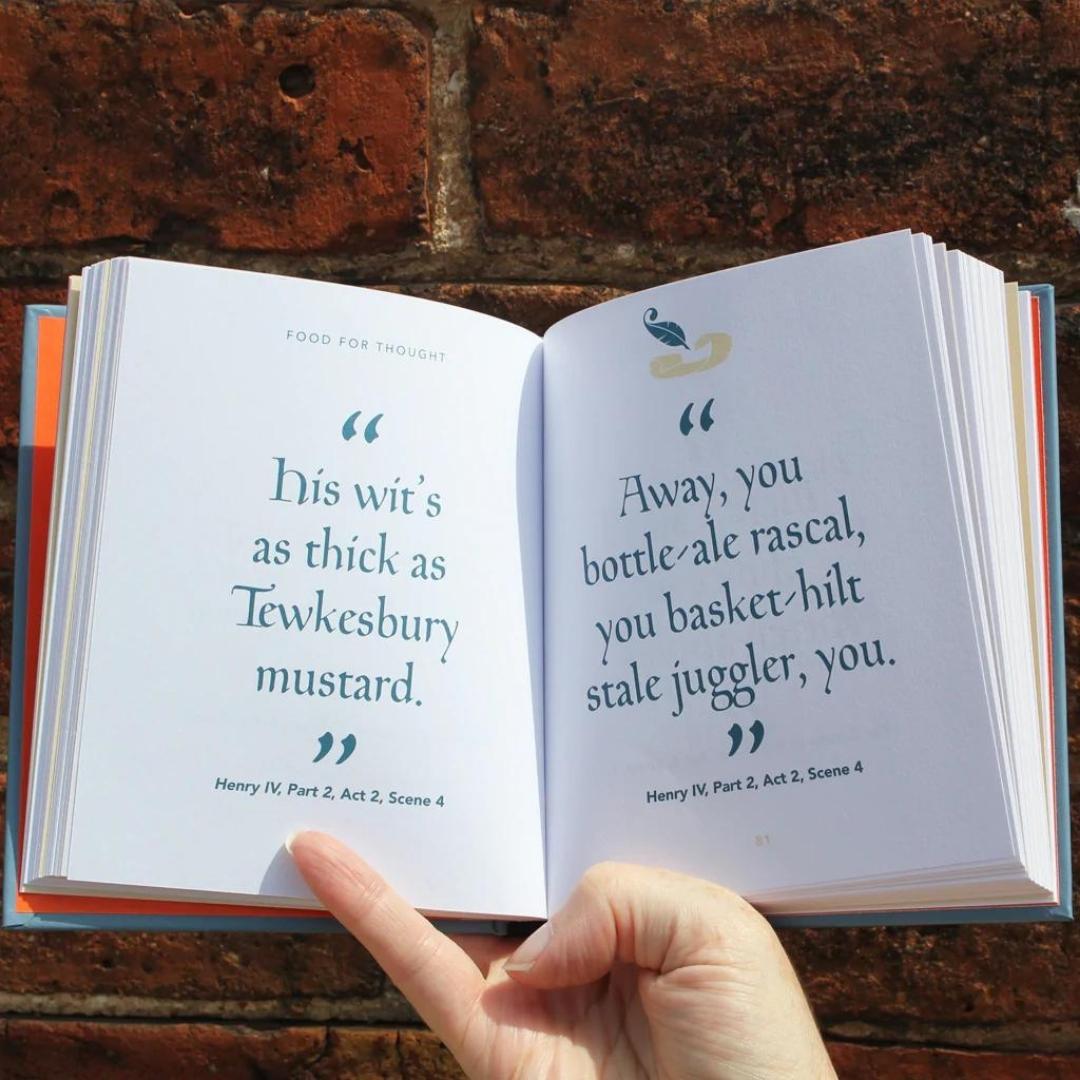 FOOD FOR THOUGHT
“
his wit's
as thick as
Tewkesbury
mustard.
”
Henry IV, Part 2, Act 2, Scene 4
“
Away, you
bottle-ale rascal,
you basket-hilt
stale juggler, you.
”
Henry IV, Part 2, Act 2, Scene 4
81